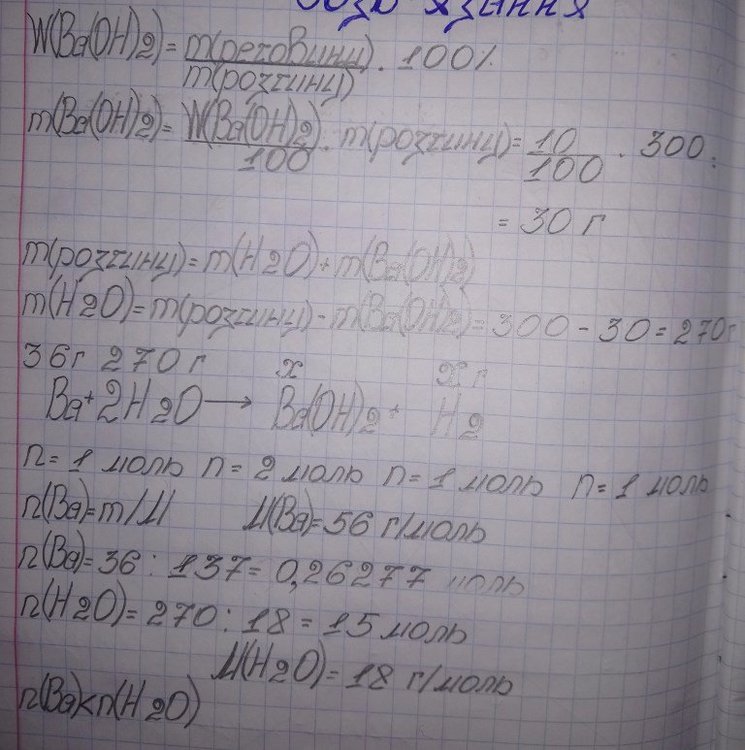 Розв'язання
W(Ba(OH)2) = m(речовини) / m(розчину) · 100%
m(Ba(OH)2) = W(Ba(OH)2) / 100 · m(розчину) = 10 / 100 · 300 =
= 30 г
m(розчину) = m(H2O) + m(Ba(OH)2)
m(H2O) = m(розчину) - m(Ba(OH)2) = 300 - 30 = 270 г
36 г 270 г x x г
Ba + 2H2O → Ba(OH)2 + H2
n = 1 моль n = 2 моль n = 1 моль n = 1 моль
n(Ba) = m/M M(Ba) = 56 г/моль
n(Ba) = 36 : 137 = 0,26277 моль
n(H2O) = 270 : 18 = 15 моль
M(H2O) = 18 г/моль
n(Ba) < n(H2O)